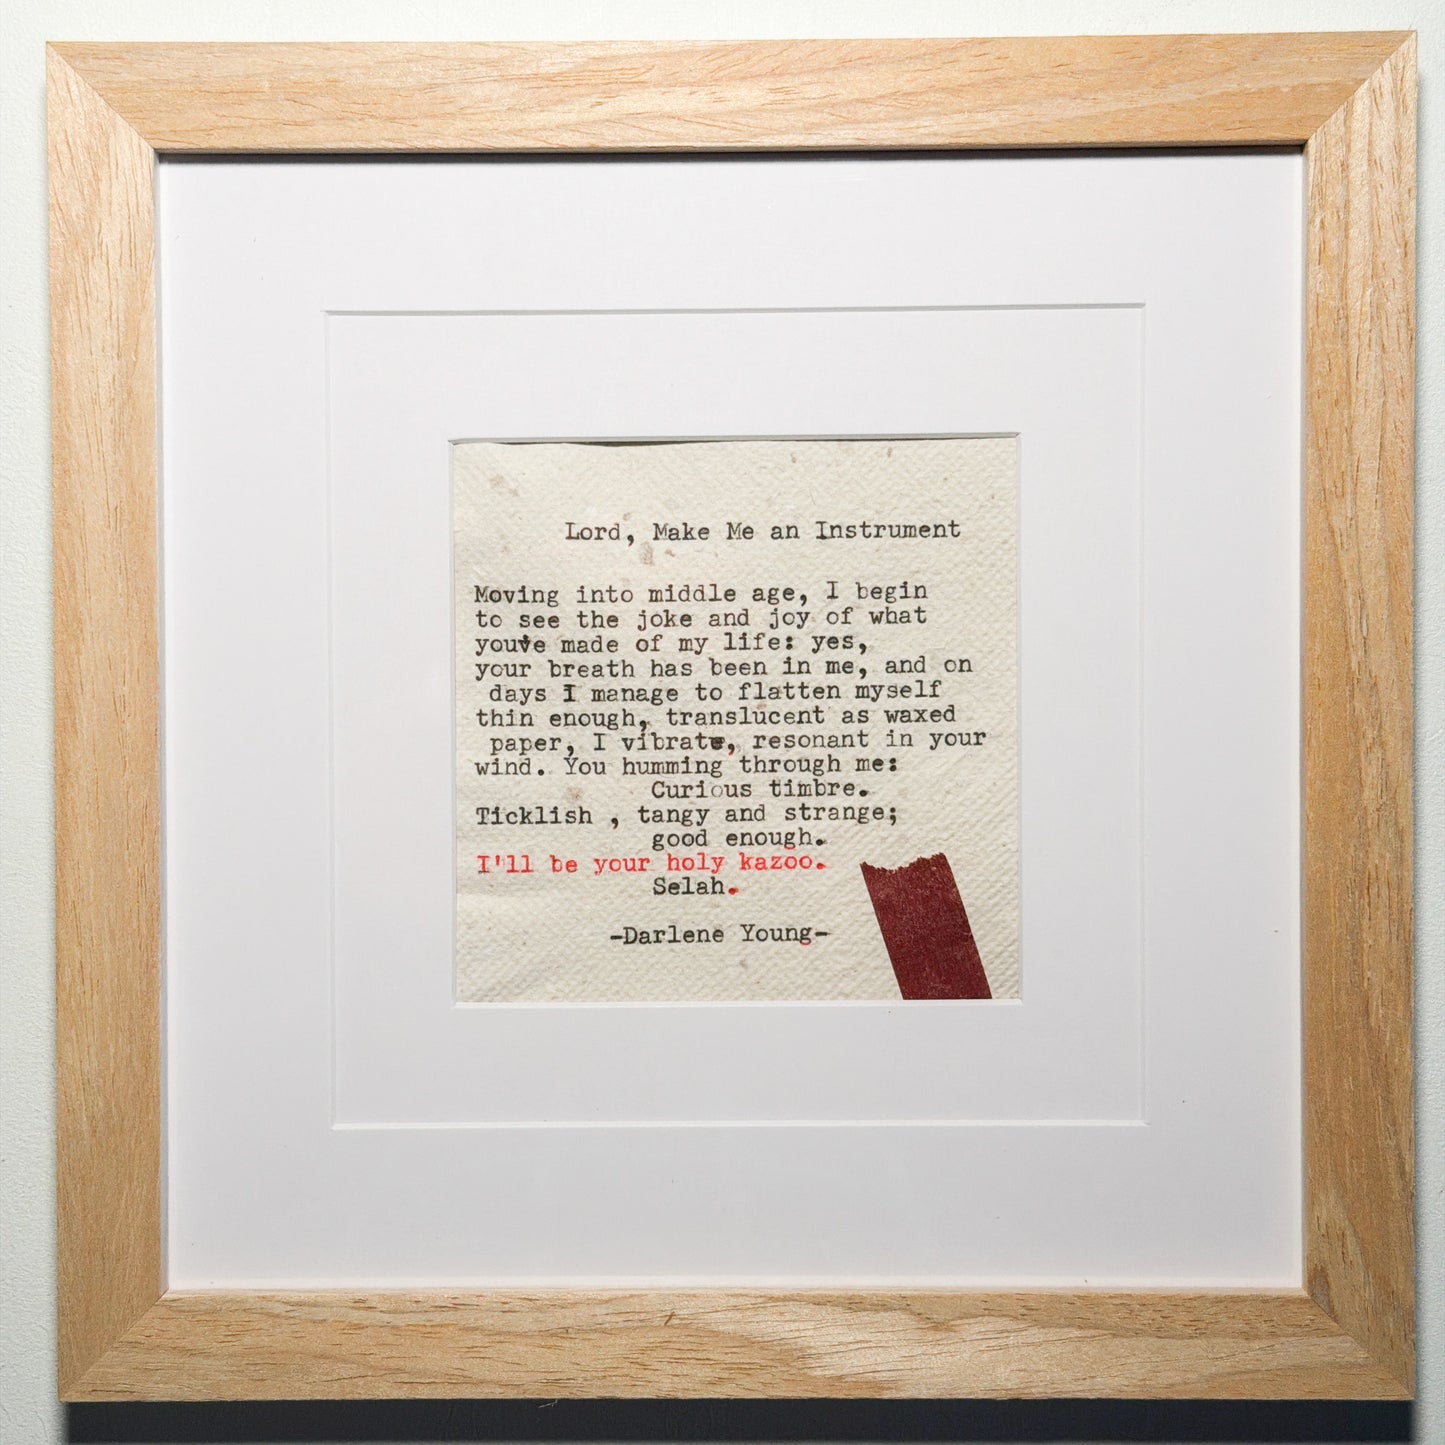 Lord, Make Me an Instrument
Moving into middle age, I begin
to see the joke and joy of what
you've made of my life: yes,
your breath has been in me, and on
days I manage to flatten myself
thin enough, translucent as waxed
paper, I vibrate, resonant in your
wind. You humming through me:
Curious timbre.
Ticklish , tangy and strange;
good enough.
I'll be your holy kazoo.
Selah.
-Darlene Young-